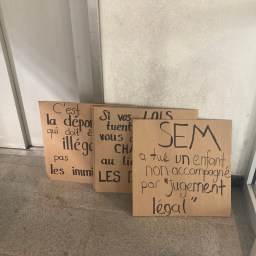 C'est
la dépor
qui doit ê
illéga
pas
les immi
Si vos LOIS
tuent
vous d
CHA
au lie
LES D
SEM
a tué un enfant
non-accompagné
par "jugement
légal"